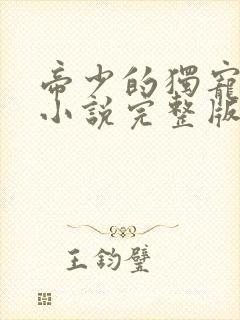 帝少的獨寵
小說完整版
王鈞璧